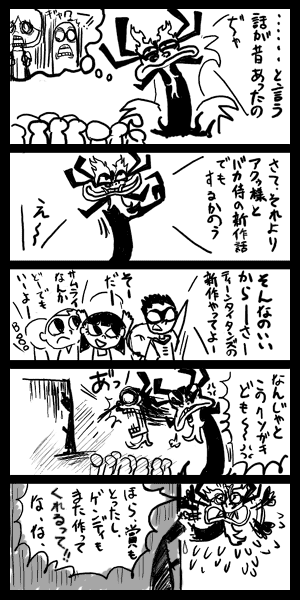 ギャワー
………と言う
話が昔
あったの
ぢゃ
さて、それより
アクゥ様と
バカ侍の新作話
でも
するかのう
え〜〜
そんなのいい
からーさー
ティーンタイタンズの
新作やってよー
そー
だー
サムライ
なんか
どーでも
いいよー
なんじゃと
このクソガキ
ども〜〜〜
あ゛っ
ほら、賞も
とったし、
ゲンディも
また作って
くれるって!!
な、な、